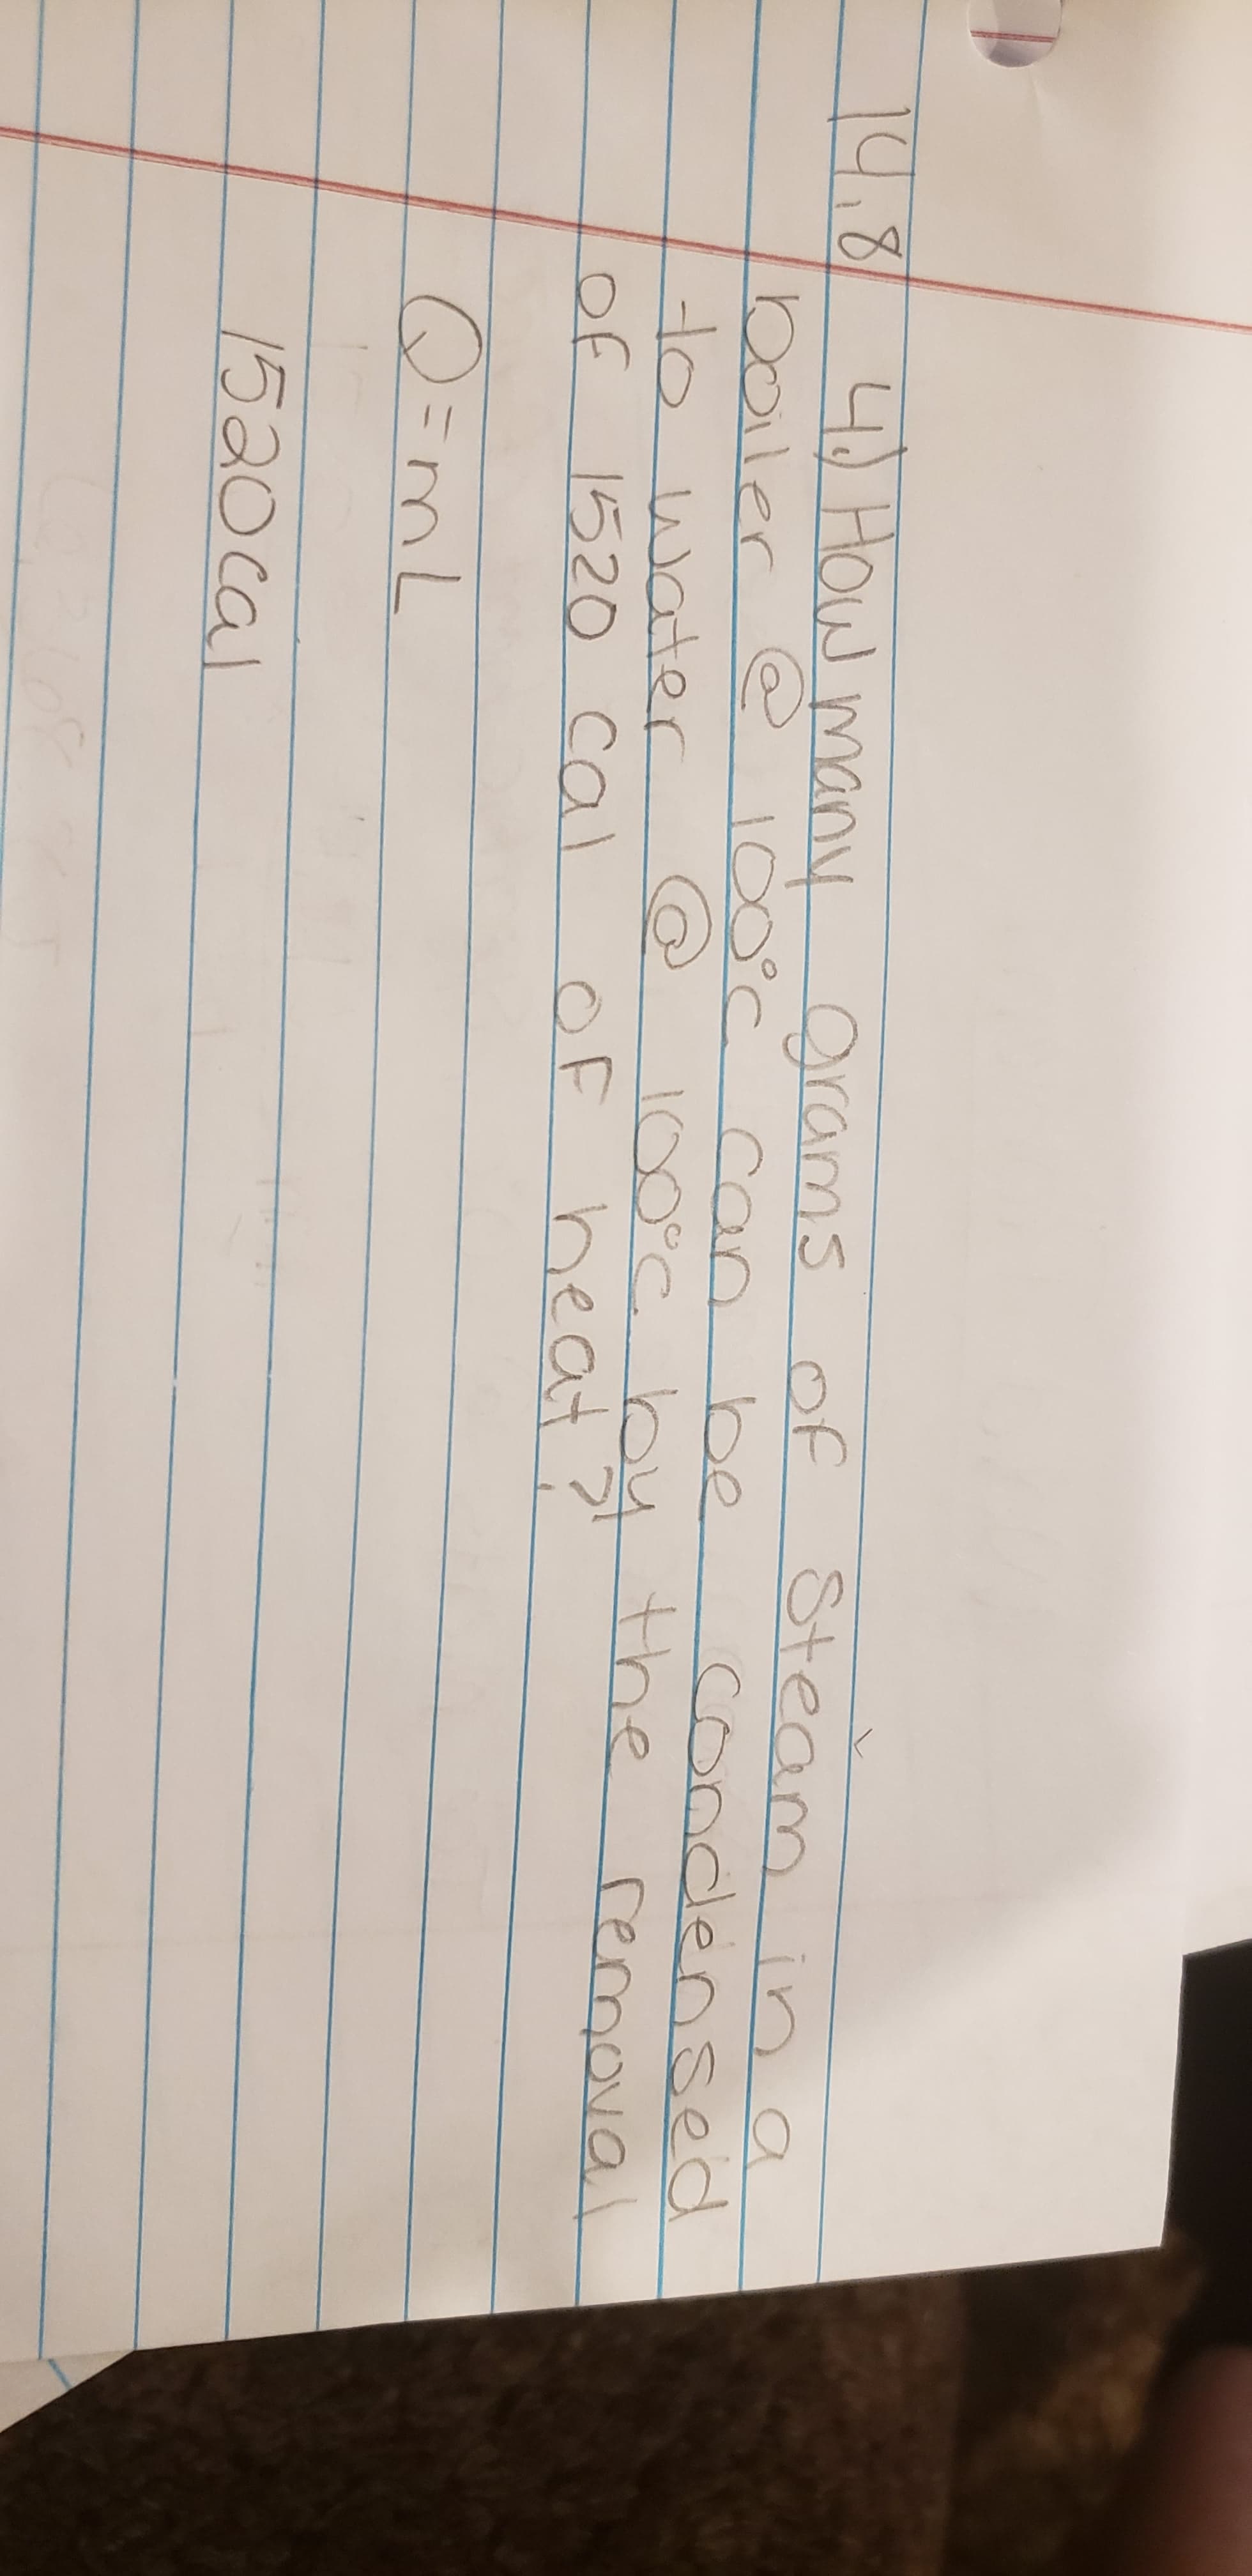 14.8 4.) How many grams of steam in a
boiler @ 100°c can be condensed
to water @ 100°c by the removal
of 1520 cal of heat?
Q=mL
1520cal